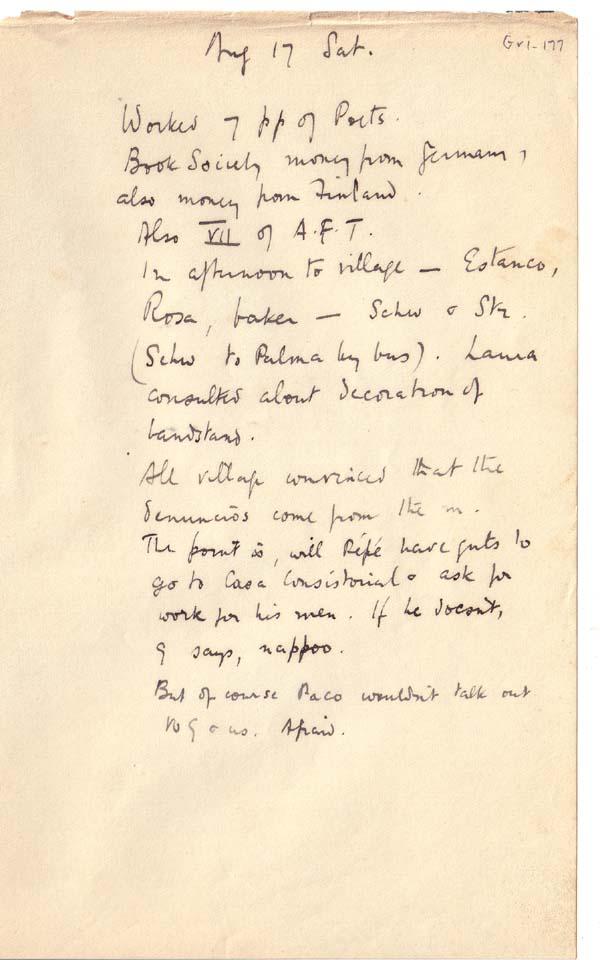 Gri-177
Aug 17 Sat.
Worked 7 pp of Poets.
Book Society money from Germany,
also money from Finland.
Also VII of A.F.T.
In afternoon to village — Estanco,
Rosa, baker — Schw & Str.
(Schw to Palma by bus). Laura
consulted about decoration of
bandstand.
All village convinced that the
denuncios come from the m.
The point is, will Pépé have guts to
go to Casa Consistorial & ask for
work for his men. If he doesn't,
G says, nappoo.
But of course Paco wouldn't talk out
to G & us. Afraid.